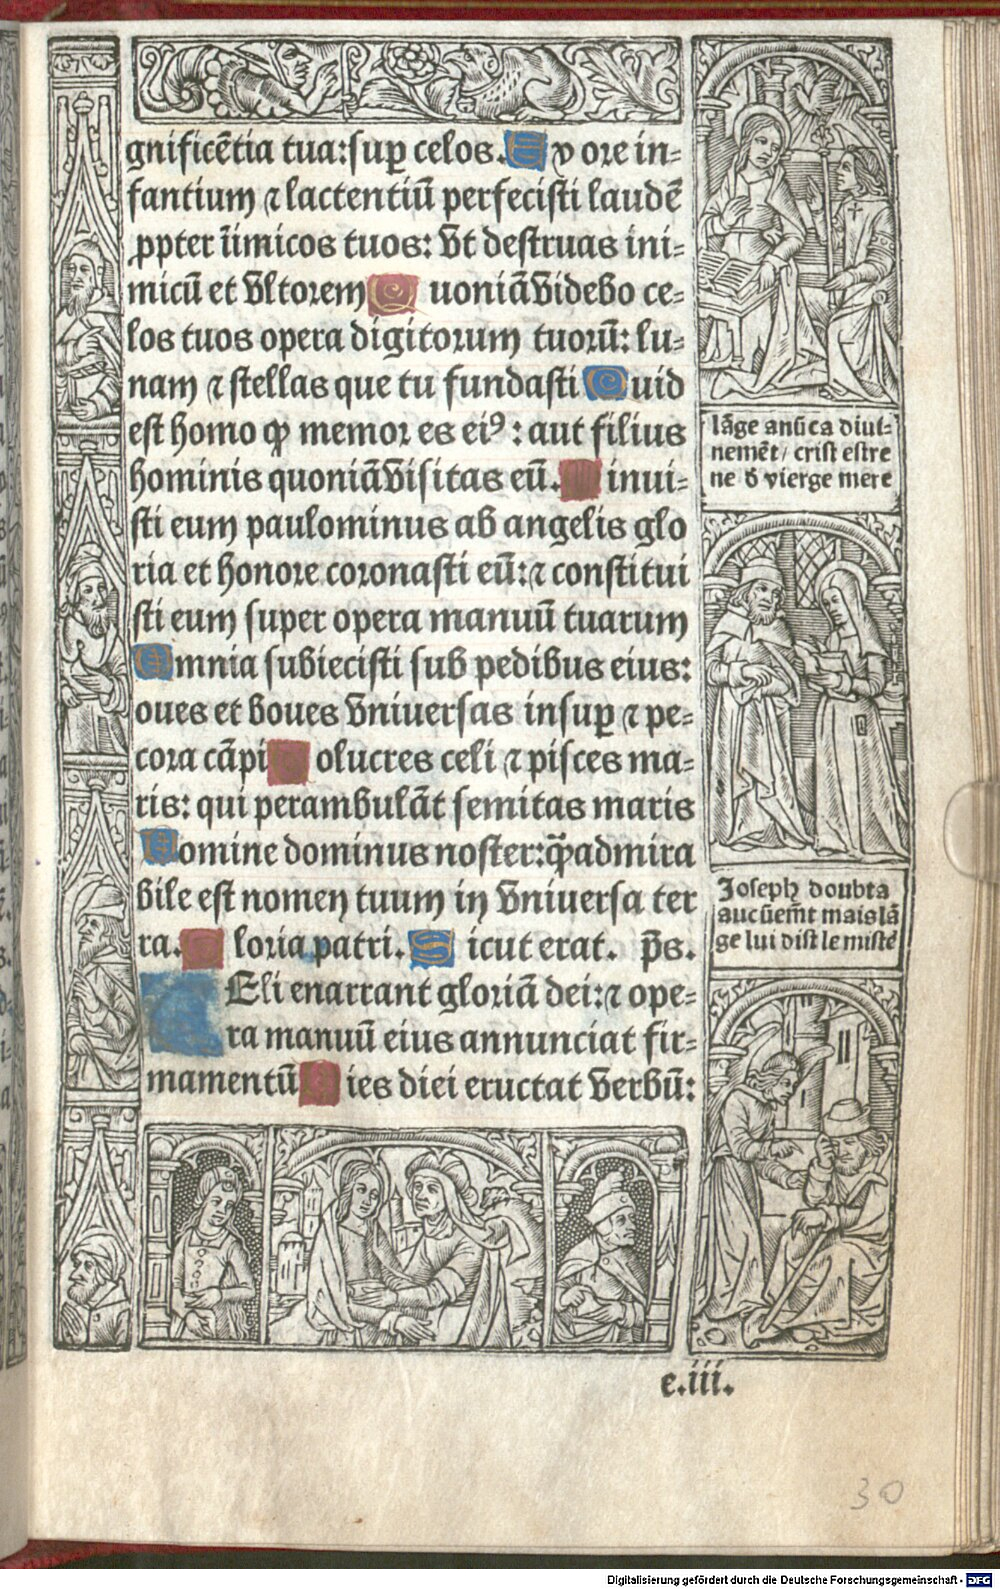 gnificētia tua:suꝑ celos. Ex ore in⸗
fantium ⁊ lactentiū perfecisti laudē
ꝓpter īimicos tuos: vt destruas ini⸗
micū et vltorem Quoniā videbo ce⸗
los tuos opera digitorum tuorū: lu⸗
nam ⁊ stellas que tu fundasti Quid
est homo ꝙ memor es eiꝰ: aut filius
hominis quoniā visitas eū. Minui⸗
sti eum paulominus ab angelis glo
ria et honore coronasti eū:⁊ constitui
sti eum super opera manuū tuarum
Omnia subiecisti sub pedibus eius:
oues et boues vniuersas insuꝑ ⁊ pe⸗
cora cāpi Volucres celi ⁊ pisces ma⸗
ris: qui perambulāt semitas maris
Domine dominus noster:ꝙ̄ admira
bile est nomen tuum in vniuersa ter
ra. Gloria patri. Sicut erat. p̄s.
CEli enarrant gloriā dei:⁊ ope⸗
ra manuū eius annunciat fir⸗
mamentū Dies diei eructat verbū:
lāge anūca diui⸗
nemēt/ crist estre
ne d̄ vierge mere
Joseph doubta
aucūem̄t mais lā
ge lui dist le misté
e.iii.
30
Digitalisierung gefördert durch die Deutsche Forschungsgemeinschaft - DFG